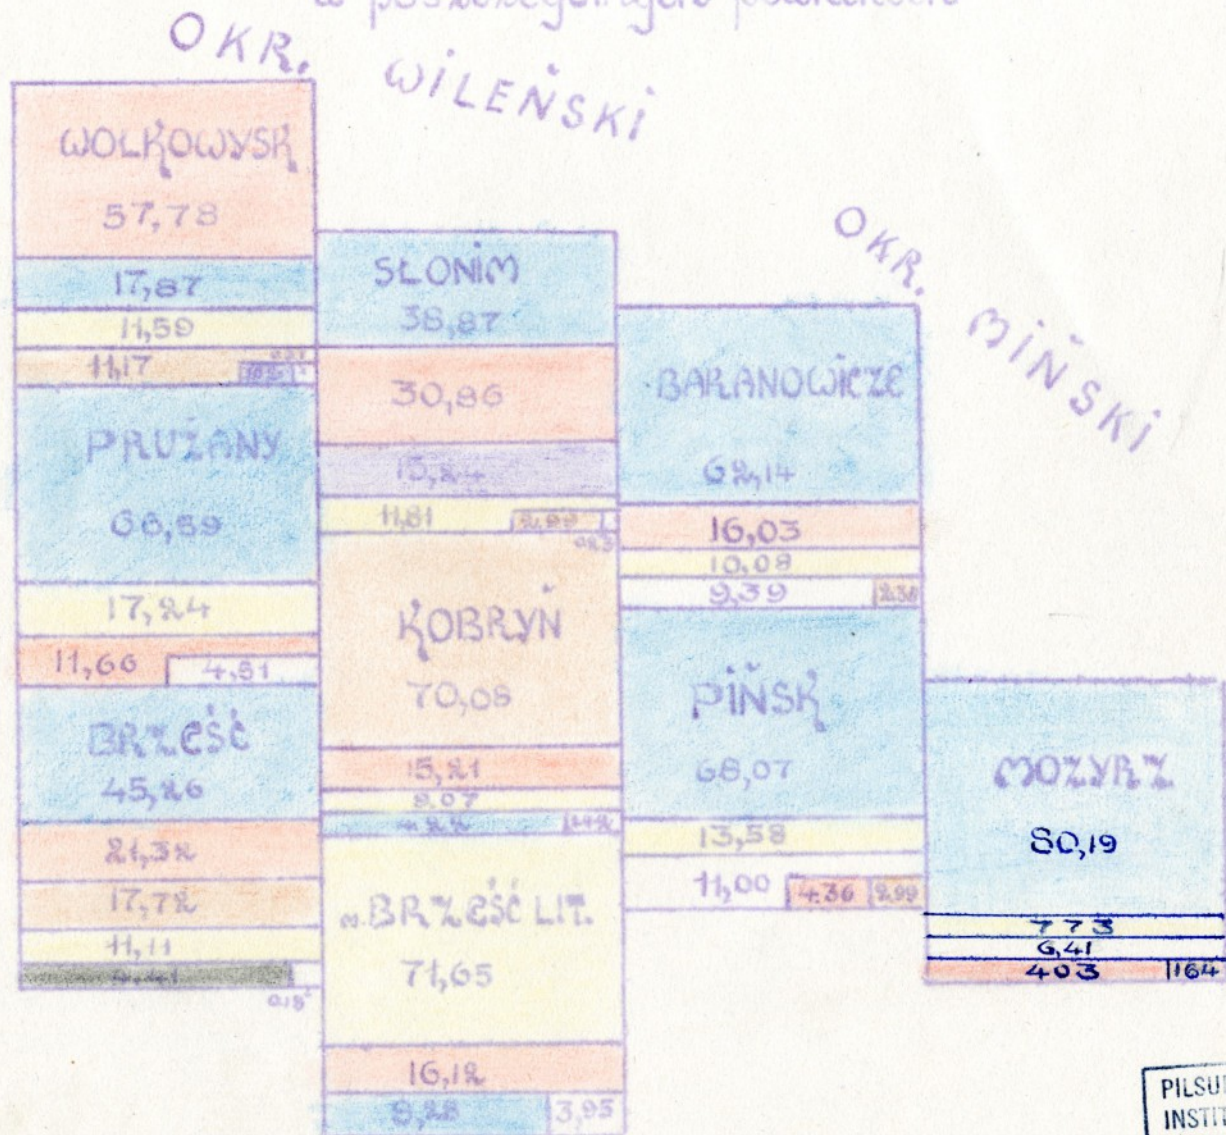 w poszczególnych powiatach
OKR. WILEŃSKI
WOŁKOWYSK
57,78
17,87
11,59
11,17
PRUŻANY
66,59
17,24
11,66 4,51
BRZEŚĆ
45,26
21,32
17,72
11,11
4,41
0,18
SŁONIM
38,87
30,86
15,24
11,81 2,99
0,23
KOBRYŃ
70,08
15,21
8,07
4,22 2,42
m. BRZEŚĆ LIT.
71,65
16,12
8,28 3,95
OKR. MIŃSKI
BARANOWICZE
62,14
16,03
10,08
9,39 2,36
PIŃSK
68,07
13,58
11,00 4.36 2,99
MOZYRZ
80,19
773
6,41
403 164
PILSU
INSTI